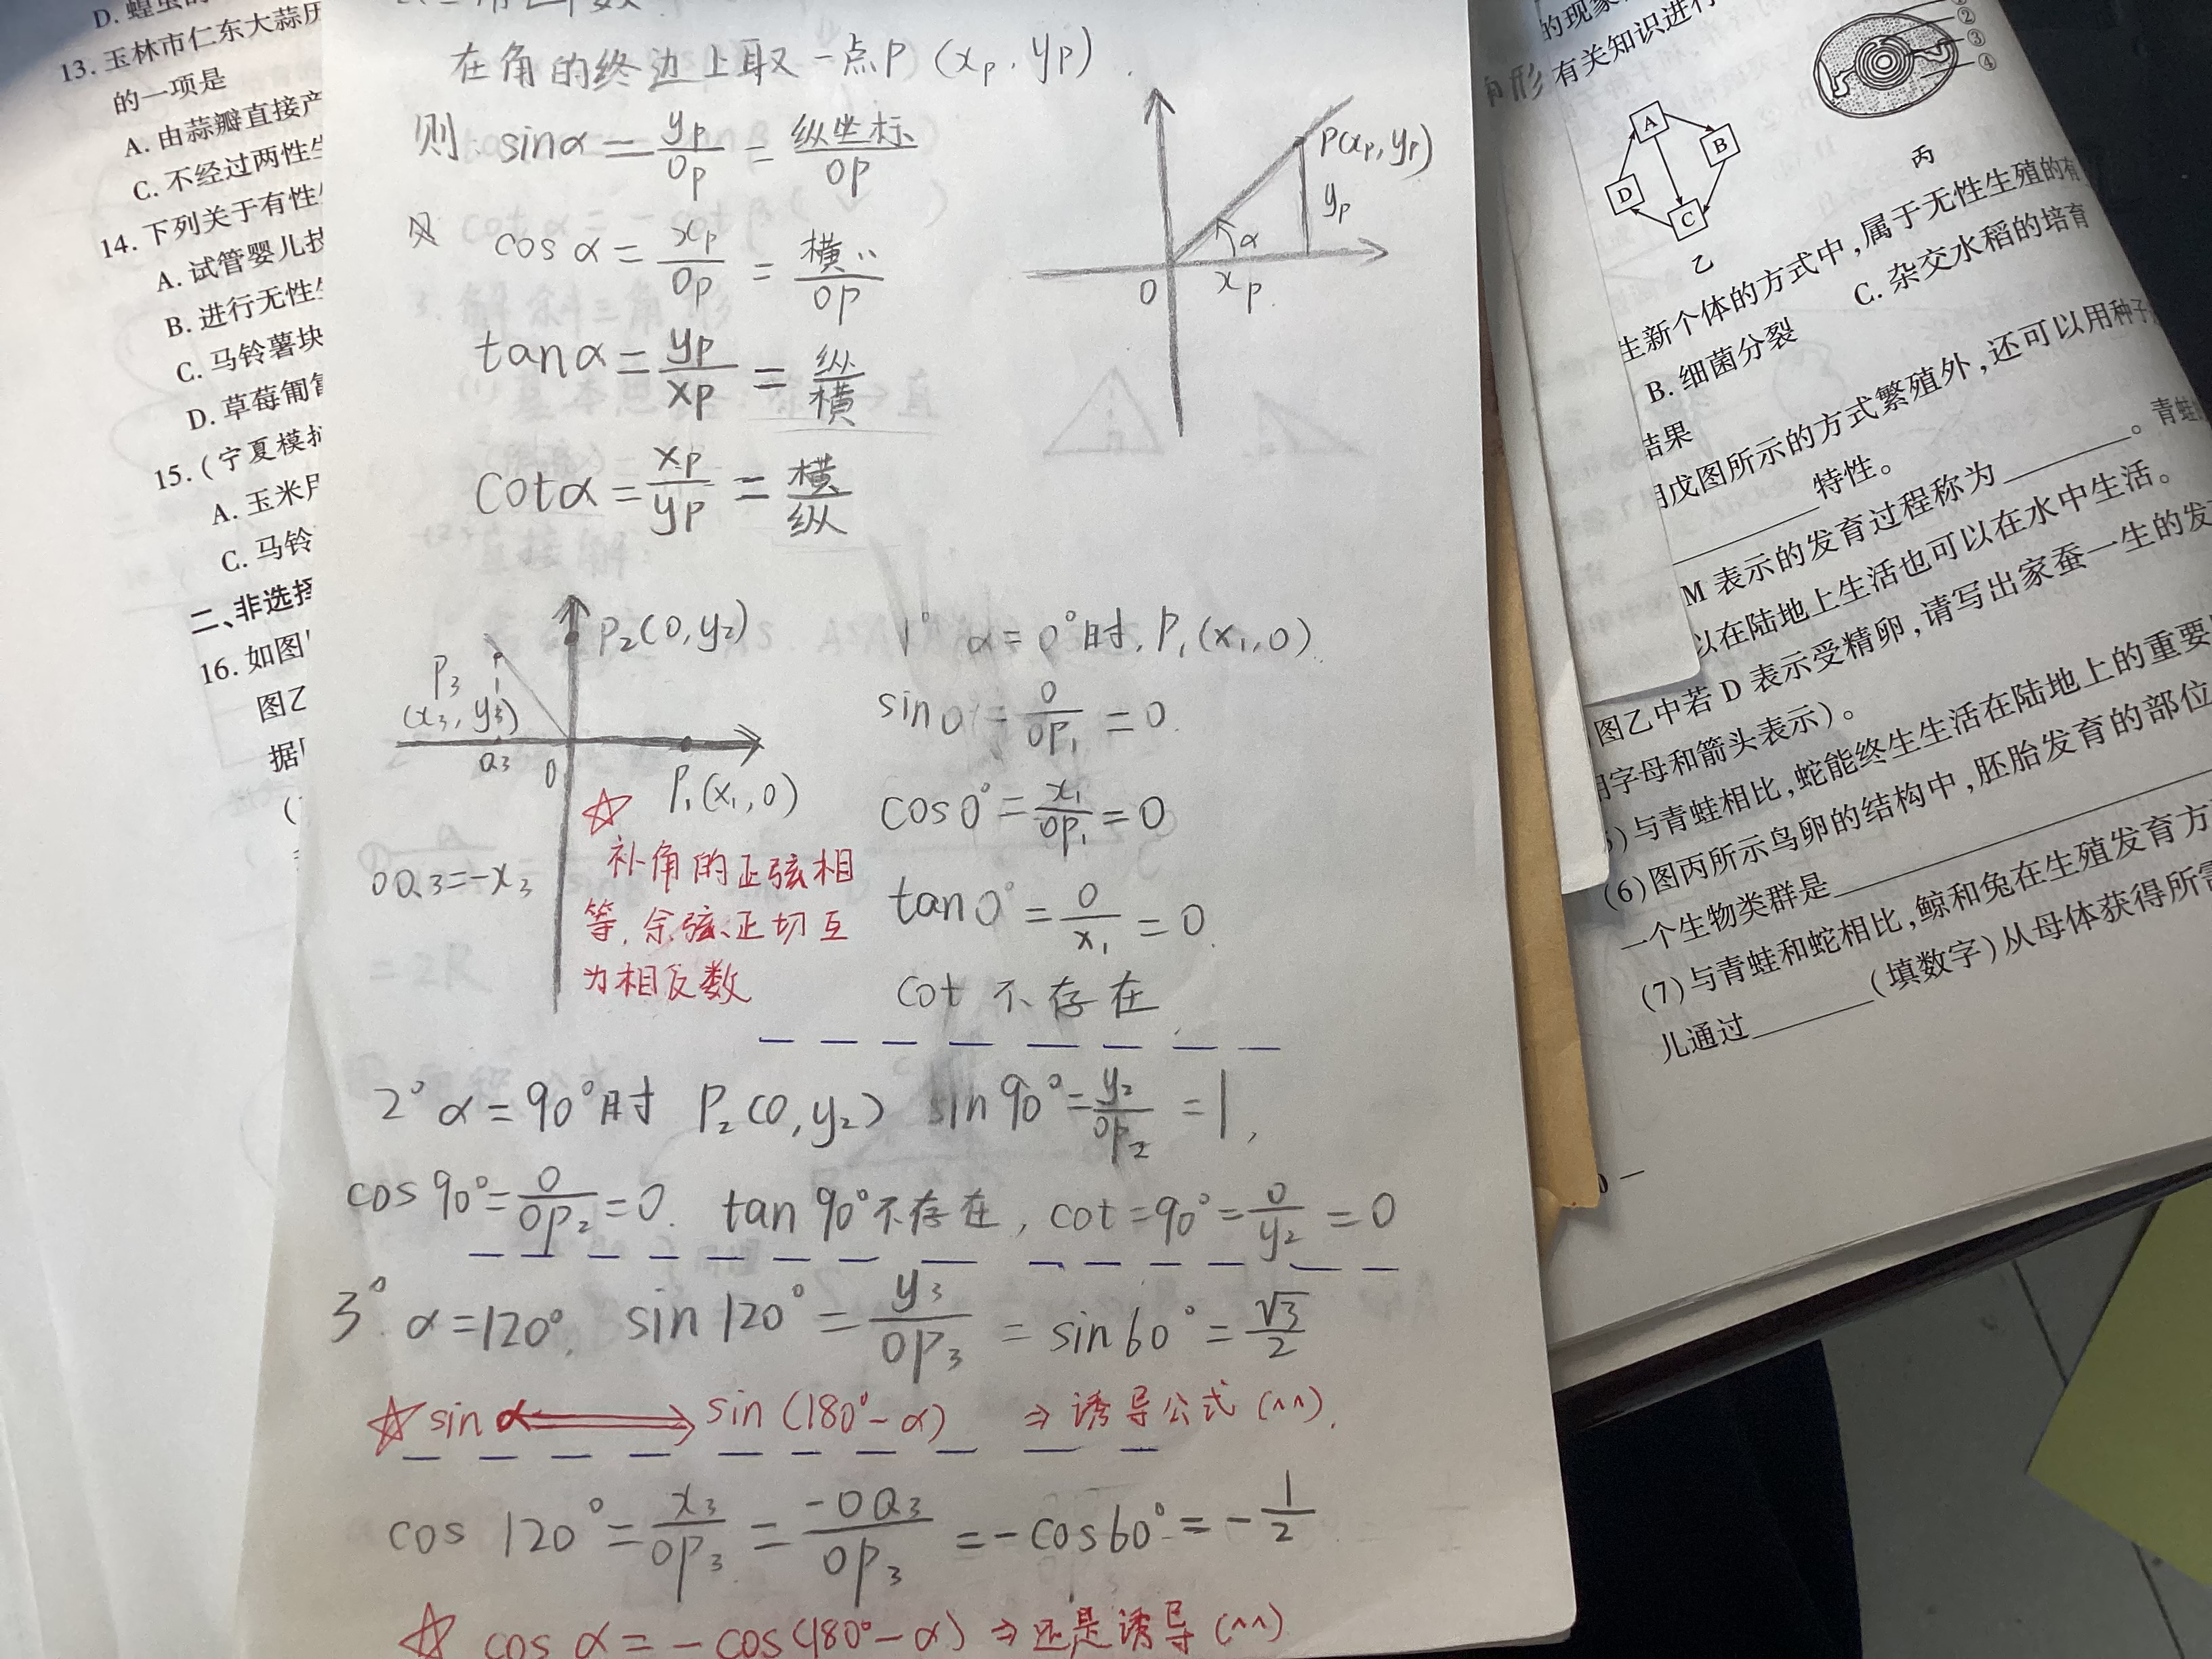 13. 玉林市仁东大蒜历
的一项是
A. 由蒜瓣直接产
C. 不经过两性生
14. 下列关于有性生
A. 试管婴儿技
B. 进行无性生
C. 马铃薯块
D. 草莓匍匐
15. (宁夏模拟
A. 玉米用
C. 马铃
二、非选择
16. 如图
图乙
据
在角的终边上取一点P (xₚ, yₚ).
则: sinα = yₚ/OP = 纵坐标/OP
cos α = xₚ/OP = 横〃/OP
tanα = yₚ/xₚ = 纵/横
cotα = xₚ/yₚ = 横/纵
P(xₚ, yₚ)
yₚ
α
O
xₚ
P₂(0, y₂)
P₃
(x₃, y₃)
Q₃
O
P₁(x₁, 0)
OQ₃=-x₃
☆
补角的正弦相
等, 余弦、正切互
为相反数
1° α=0°时, P₁(x₁, 0).
sin0°= 0/OP₁ = 0.
cos0°= x₁/OP₁ = 0
tan0°= 0/x₁ = 0.
cot 不存在.
2° α=90°时 P₂(0, y₂) sin90°= y₂/OP₂ = 1,
cos90°= 0/OP₂ = 0. tan90°不存在, cot=90°= 0/y₂ = 0
3° α=120°. sin120°= y₃/OP₃ = sin60°= √3/2
☆ sin α ⟹ sin(180°-α) ⇒ 诱导公式(^^).
cos 120°= x₃/OP₃ = -OQ₃/OP₃ = -cos60°= -1/2
☆ cos α = -cos(180°-α) ⇒ 还是诱导(^^)
的现象
有关知识进行
②
③
④
A
B
C
D
乙
丙
生新个体的方式中,属于无性生殖的有
B. 细菌分裂 C. 杂交水稻的培育
结果
用戊图所示的方式繁殖外,还可以用种子
特性。
M 表示的发育过程称为________。青蛙
以在陆地上生活也可以在水中生活。
图乙中若 D 表示受精卵,请写出家蚕一生的发
用字母和箭头表示)。
)与青蛙相比,蛇能终生生活在陆地上的重要
(6)图丙所示鸟卵的结构中,胚胎发育的部位
一个生物类群是________
(7)与青蛙和蛇相比,鲸和兔在生殖发育方
儿通过________(填数字)从母体获得所需